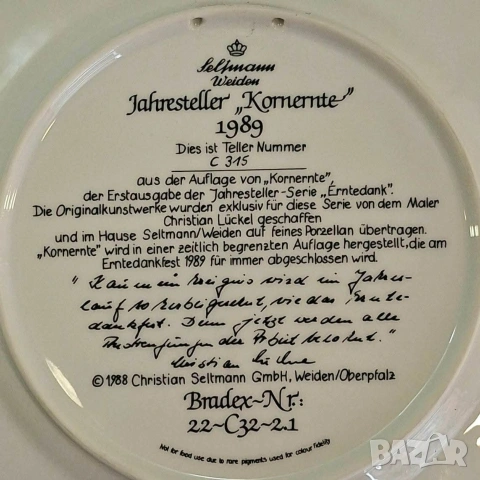 Seltmann
Weiden
Jahresteller „Kornernte"
1989
Dies ist Teller Nummer
C 315
aus der Auflage von „Kornernte",
der Erstausgabe der Jahresteller-Serie „Erntedank".
Die Originalkunstwerke wurden exklusiv für diese Serie von dem Maler
Christian Lückel geschaffen
und im Hause Seltmann/Weiden auf feines Porzellan übertragen.
„Kornernte" wird in einer zeitlich begrenzten Auflage hergestellt, die am
Erntedankfest 1989 für immer abgeschlossen wird.
"Kaum ein Ereignis wird im Jahres-
lauf so herbeigesehnt, wie das Ernte-
dankfest. Denn jetzt werden alle
Anstrengungen der Arbeit belohnt."
Christian Lückel
© 1988 Christian Seltmann GmbH, Weiden/Oberpfalz
Bradex~Nr:
22~C32~2.1
Not for food use due to rare pigments used for colour fidelity
BAZAR.bg